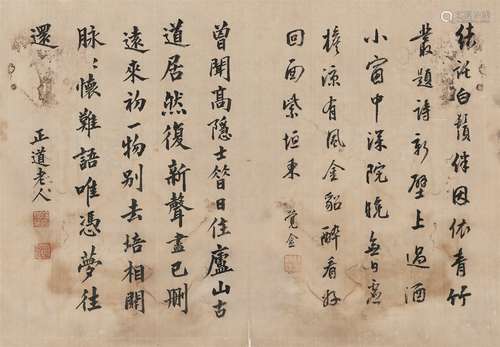 結託白鬚伴因依青竹
叢題詩新壁上過酒
小窗中深院晚無日虛
檐涼有風金貂醉看好
回面紫垣東
曾聞高隱士昔日住廬山古
道居然復新聲盡已刪
遠來初一物別去培相關
脉〻懷難語唯憑夢往
還
正道老人